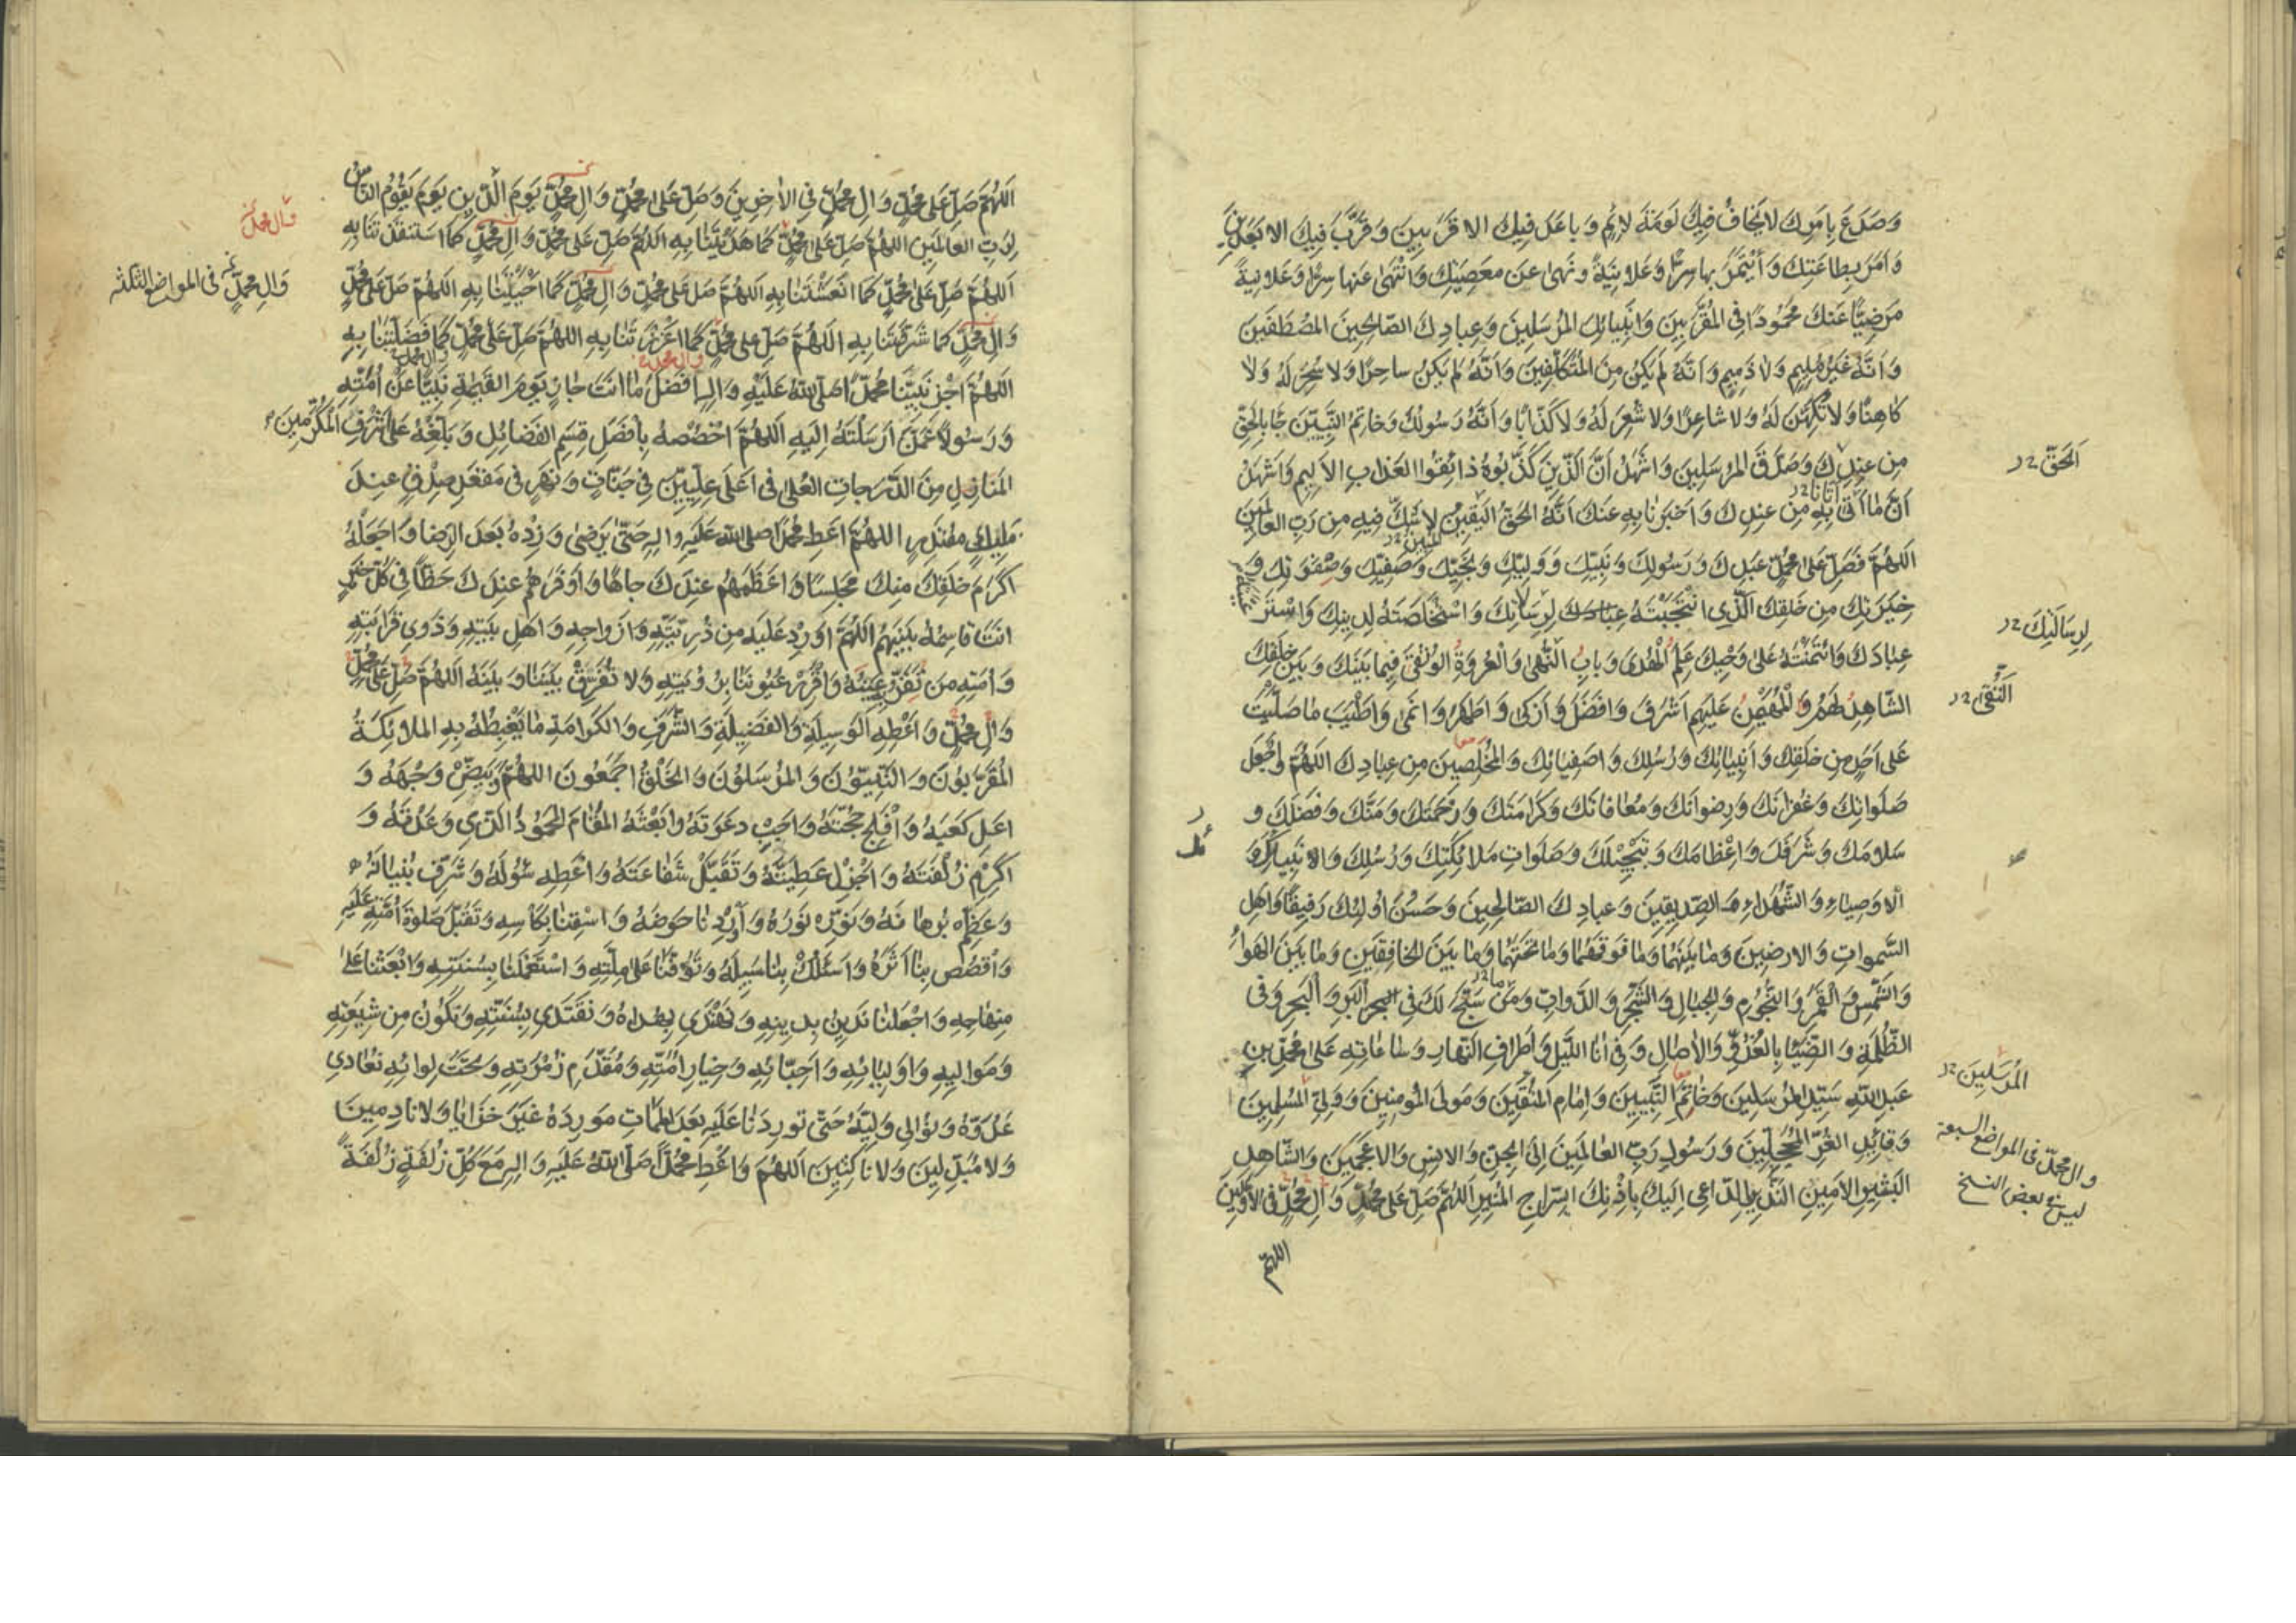 وَصَدَعَ بِاَمرِكَ لا يَخافُ فيكَ لَومَةَ لائِمٍ وَباعَدَ فيكَ الاَقرَبينَ وَقَرَّبَ فيكَ الاَبعَدينَ
وَاَمَرَ بِطاعَتِكَ وَأئتَمَرَ بِها سِرًّا وَعَلانِيَةً وَنَهى عَن مَعصِيَتِكَ وَانتَهى عَنها سِرًّا وَعَلانِيَةً
مَرضِيًّا عِندَكَ مَحمُودًا فِى المُقَرَّبينَ وَاَنبِيائِكَ المُرسَلينَ وَعِبادِكَ الصّالِحينَ المُصطَفَينَ
وَاَنَّهُ غَيرُ مُليمٍ وَلا ذَميمٍ وَاَنَّهُ لَم يَكُن مِنَ المُتَكَلِّفينَ وَاَنَّهُ لَم يَكُن ساحِرًا وَلا سُحِرَ لَهُ وَلا
كاهِنًا وَلا تُكُهِّنَ لَهُ وَلا شاعِرًا وَلا شُعِرَ لَهُ وَلا كَذّابًا وَاَنَّهُ رَسُولُكَ وَخاتَمُ النَّبِيّينَ جاءَ بِالحَقِّ
مِن عِندِكَ وَصَدَّقَ المُرسَلينَ وَاَشهَدُ اَنَّ الَّذينَ كَذَّبُوهُ ذائِقُوا العَذابِ الاَليمِ وَاَشهَدُ
اَنَّ ما اَتى بِهِ مِن عِندِكَ وَاَخبَرَنا بِهِ عَنكَ اَنَّهُ الحَقُّ اليَقينُ لا شَكَّ فيهِ مِن رَبِّ العالَمينَ
اَللّهُمَّ فَصَلِّ عَلى مُحَمَّدٍ عَبدِكَ وَرَسُولِكَ وَنَبِيِّكَ وَوَلِيِّكَ وَنَجِيِّكَ وَصَفِيِّكَ وَصِفوَتِكَ وَ
خِيَرَتِكَ مِن خَلقِكَ الَّذِى انتَجَبتَهُ لِرِسالاتِكَ وَاستَخلَصتَهُ لِدينِكَ وَاستَرعَيتَهُ
عِبادَكَ وَائتَمَنتَهُ عَلى وَحيِكَ عَلَمِ الهُدى وَبابِ النُّهى وَالعُروَةِ الوُثقى فيما بَينَكَ وَبَينَ خَلقِكَ
الشّاهِدِ لَهُم وَالمُهَيمِنِ عَلَيهِم اَشرَفَ وَافضَلَ وَاَزكى وَاَطهَرَ وَانمى وَاَطيَبَ ما صَلَّيتَ
عَلى اَحَدٍ مِن خَلقِكَ وَاَنبِيائِكَ وَرُسُلِكَ وَاصفِيائِكَ وَالمُخلَصينَ مِن عِبادِكَ اللّهُمَّ وَاجعَل
صَلَواتِكَ وَغُفرانَكَ وَرِضوانَكَ وَمُعافاتَكَ وَكَرامَتَكَ وَرَحمَتَكَ وَمَنَّكَ وَفَضلَكَ وَ
سَلامَكَ وَشَرَفَكَ وَاِعظامَكَ وَتَبجيلَكَ وَصَلَواتِ مَلائِكَتِكَ وَرُسُلِكَ وَالاَنبِياءِ وَ
الاَوصِياءِ وَالشُّهَداءِ وَالصِّدّيقينَ وَعِبادِكَ الصّالِحينَ وَحَسُنَ اُولئِكَ رَفيقًا وَاَهلِ
السَّمواتِ وَالارَضينَ وَما بَينَهُما وَما فَوقَهُما وَما تَحتَهُما وَما بَينَ الخافِقَينِ وَما بَينَ الهَواءِ
وَالشَّمسِ وَالقَمَرِ وَالنُّجُومِ وَالجِبالِ وَالشَّجَرِ وَالدَّوابِّ وَمَن سَبَّحَ لَكَ فِى البَرِّ وَالبَحرِ وَفِى
الظُّلمَةِ وَالضِّياءِ بِالغُدُوِّ وَالاصالِ وَفى اناءِ اللَّيلِ وَاَطرافِ النَّهارِ وَساعاتِهِ عَلى مُحَمَّدِ بنِ
عَبدِ اللهِ سَيِّدِ المُرسَلينَ وَخاتَمِ النَّبِيّينَ وَاِمامِ المُتَّقينَ وَمَولَى المُؤمِنينَ وَوَلِىِّ المُسلِمينَ
وَقائِدِ الغُرِّ المُحَجَّلينَ وَرَسُولِ رَبِّ العالَمينَ اِلَى الجِنِّ وَالاِنسِ وَالاَعجَمينَ وَالشّاهِدِ
البَشيرِ الاَمينِ النَّذيرِ الدّاعى اِلَيكَ بِاِذنِكَ السِّراجِ المُنيرِ اَللّهُمَّ صَلِّ عَلى مُحَمَّدٍ وَآلِ مُحَمَّدٍ فِى الاَوَّلينَ
اللّهمّ
اَلحَقّ
لِرِسالَتِكَ
اَلتُّقى
المُرسَلينَ
وال محمّد فى المواضع السبعة
ليس فى بعض النسخ
اَللّهُمَّ صَلِّ عَلى مُحَمَّدٍ وَالِ مُحَمَّدٍ فِى الاخِرينَ وَصَلِّ عَلى مُحَمَّدٍ وَالِ مُحَمَّدٍ يَومَ الدّينِ يَومَ يَقُومُ النّاسُ
لِرَبِّ العالَمينَ اللّهُمَّ صَلِّ عَلى مُحَمَّدٍ كَما هَدَيتَنا بِهِ اَللّهُمَّ صَلِّ عَلى مُحَمَّدٍ وَالِ مُحَمَّدٍ كَمَا استَنقَذتَنا بِهِ
اَللّهُمَّ صَلِّ عَلى مُحَمَّدٍ كَمَا انعَشتَنا بِهِ اَللّهُمَّ صَلِّ عَلى مُحَمَّدٍ وَالِ مُحَمَّدٍ كَما اَحيَيتَنا بِهِ اَللّهُمَّ صَلِّ عَلى مُحَمَّدٍ
وَالِ مُحَمَّدٍ كَما شَرَّفتَنا بِهِ اَللّهُمَّ صَلِّ عَلى مُحَمَّدٍ كَما اَعزَزتَنا بِهِ اللّهُمَّ صَلِّ عَلى مُحَمَّدٍ كَما فَضَّلتَنا بِهِ
اَللّهُمَّ اجزِ نَبِيَّنا مُحَمَّدًا صَلَّى اللهُ عَلَيهِ وَالِهِ اَفضَلَ ما اَنتَ جازٍ يَومَ القِيمَةِ نَبِيًّا عَن اُمَّتِهِ
وَرَسُولاً عَمَّن اَرسَلتَهُ اِلَيهِ اَللّهُمَّ اخصُصهُ بِاَفضَلِ قِسَمِ الفَضائِلِ وَبَلِّغهُ اَعلى شَرَفِ المُكَرَّمينَ
المَنازِلِ مِنَ الدَّرَجاتِ العُلى فى اَعلى عِلِّيّينَ فى جَنّاتٍ وَنَهَرٍ فى مَقعَدِ صِدقٍ عِندَ
مَليكٍ مُقتَدِرٍ اللّهُمَّ اَعطِ مُحَمَّدًا صلى الله عَلَيهِ والِهِ حَتّى يَرضى وَزِدهُ بَعدَ الرِّضا وَاجعَلهُ
اَكرَمَ خَلقِكَ مِنكَ مَجلِسًا وَاَعظَمَهُم عِندَكَ جاهًا وَاَوفَرَهُم عِندَكَ حَظًّا فى كُلِّ خَيرٍ
اَنتَ قاسِمُهُ بَينَهُم اَللّهُمَّ اَورِد عَلَيهِ مِن ذُرِّيَّتِهِ وَاَزواجِهِ وَاَهلِ بَيتِهِ وَذَوى قَرابَتِهِ
وَاُمَّتِهِ مَن تَقَرُّ بِهِ عَينُهُ وَاَقرِر عُيُونَنا بِرُؤيَتِهِ وَلا تُفَرِّق بَينَنا وَبَينَهُ اَللّهُمَّ صَلِّ عَلى مُحَمَّدٍ
وَالِ مُحَمَّدٍ وَاَعطِهِ الوَسيلَةَ وَالفَضيلَةَ وَالشَّرَفَ وَالكَرامَةَ ما يَغبِطُهُ بِهِ المَلائِكَةُ
المُقَرَّبُونَ وَالنَّبِيُّونَ وَالمُرسَلُونَ وَالخَلقُ اَجمَعُونَ اللّهُمَّ بَيِّض وَجهَهُ وَ
اَعلِ كَعبَهُ وَاَفلِج حُجَّتَهُ وَاَجِب دَعوَتَهُ وَابعَثهُ المَقامَ المَحمُودَ الَّذى وَعَدتَهُ وَ
اَكرِم زُلفَتَهُ وَاَجزِل عَطِيَّتَهُ وَتَقَبَّل شَفاعَتَهُ وَاَعطِهِ سُؤلَهُ وَشَرِّف بُنيانَهُ
وَعَظِّم بُرهانَهُ وَنَوِّر نُورَهُ وَاَورِدنا حَوضَهُ وَاسقِنا بِكَأسِهِ وَتَقَبَّل صَلوةَ اُمَّتِهِ عَلَيهِ
وَاقصُص بِنا اَثَرَهُ وَاسلُك بِنا سَبيلَهُ وَتَوَفَّنا عَلى مِلَّتِهِ وَاستَعمِلنا بِسُنَّتِهِ وَابعَثنا عَلى
مِنهاجِهِ وَاجعَلنا نَدينُ بِدينِهِ وَنَهتَدى بِهُداهُ وَنَقتَدى بِسُنَّتِهِ وَنَكُونُ مِن شيعَتِهِ
وَمَواليهِ وَاَولِيائِهِ وَاَحِبّائِهِ وَخِيارِ اُمَّتِهِ وَمُقَدَّمِ زُمرَتِهِ وَتَحتَ لِوائِهِ نُعادى
عَدُوَّهُ وَنُوالى وَلِيَّهُ حَتّى تُورِدَنا عَلَيهِ بَعدَ المَماتِ مَورِدَهُ غَيرَ خَزايا وَلا نادِمينَ
وَلا مُبَدِّلينَ وَلا ناكِثينَ اَللّهُمَّ وَاَعطِ مُحَمَّدًا صَلَّى اللهُ عَلَيهِ وَالِهِ مَعَ كُلِّ زُلفَةٍ زُلفَةً
وآل محمد
وَالِ مُحَمَّدٍ فى المواضع الثلثة